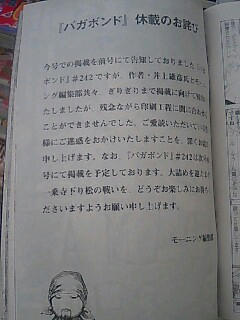 『バガボンド』休載のお詫び
今号での掲載を前号にて告知しておりました『バガ
ボンド』#242ですが、作者・井上雄彦氏とモー
ニング編集部共々、ぎりぎりまで掲載に向けて
たしましたが、残念ながら印刷工程に間に合わ
ことができませんでした。ご愛読いただいて
様にご迷惑をおかけいたしますことを、深くお詫び
申し上げます。なお、『バガボンド』#242は次
号にて掲載を予定しております。大詰めを迎えた
一乗寺下り松の戦いを、どうぞお楽しみにお待ち
くださいますようお願い申し上げます。
モーニング編集部